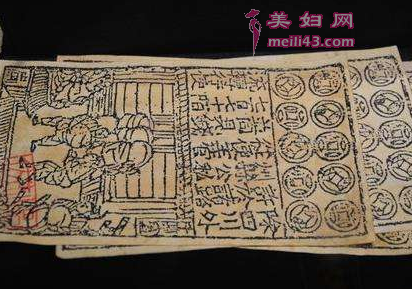 美妇网
meili43.com
除四川外
許於諸路
州縣公私
從便主管
並同見錢
七百七十
陌流轉行使